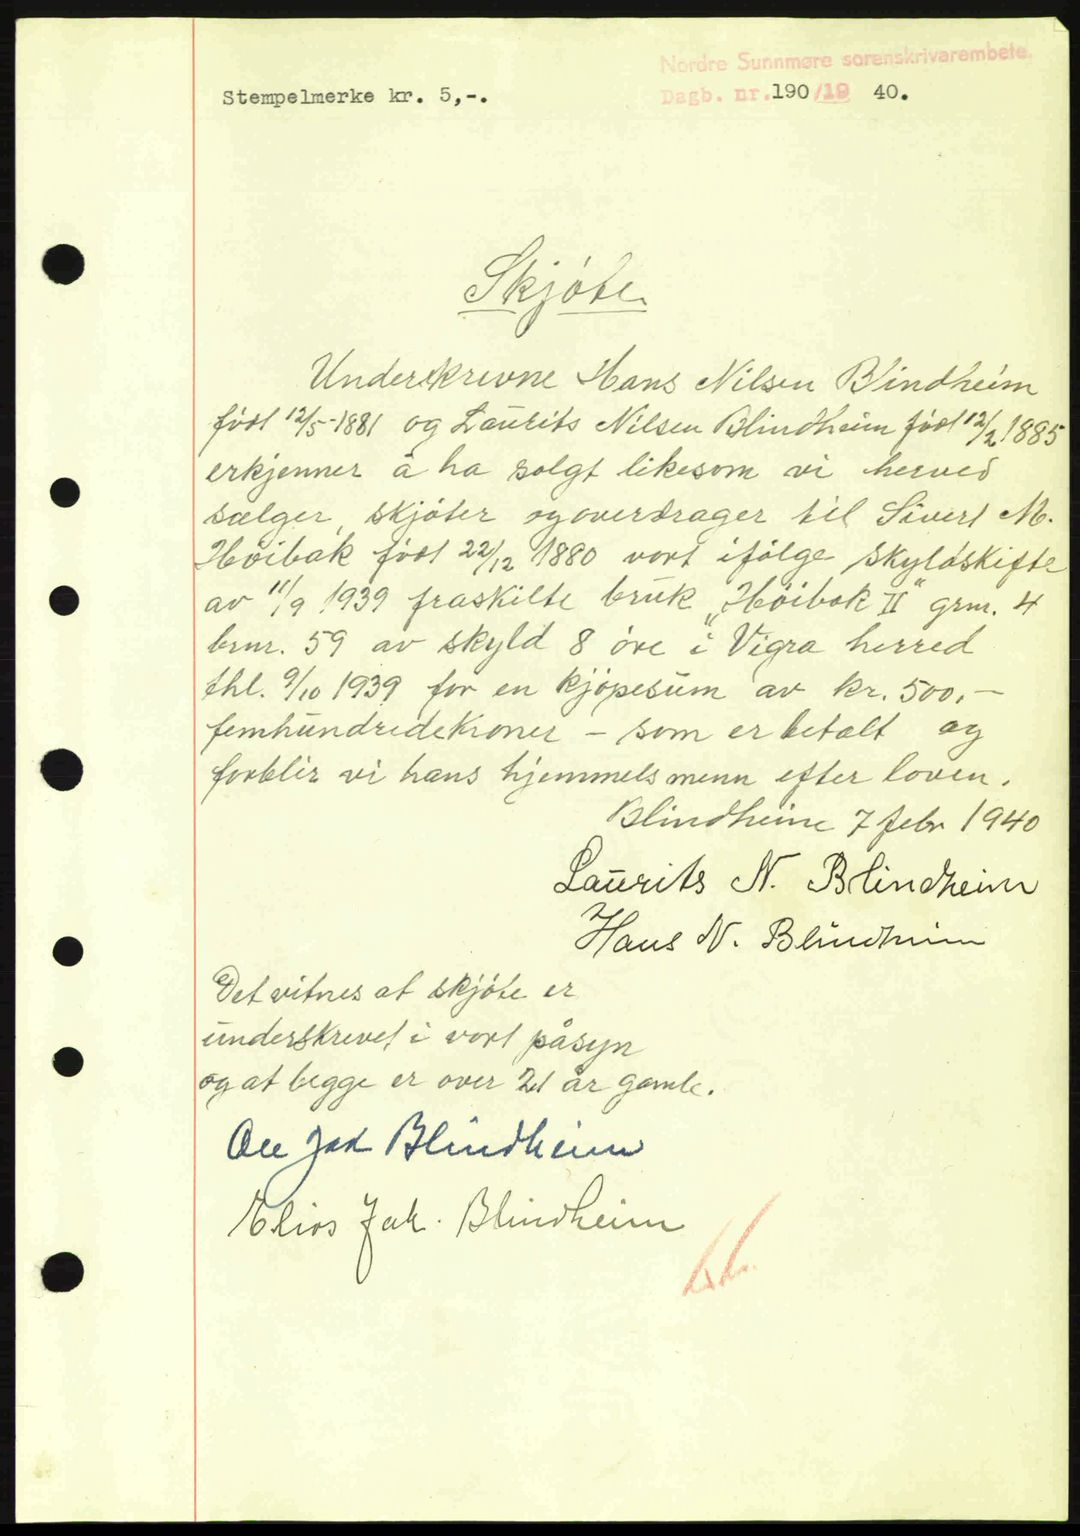 Nordre Sunnmøre sorenskrivarembete.
Stempelmerke kr. 5,-. Dagb. nr. 190/19 40.
Skjøte.
Underskrevne Hans Nilsen Blindheim
født 12/5-1881 og Laurits Nilsen Blindheim født 12/2 1885
erkjenner å ha solgt likesom vi herved
sælger, skjøter og overdrager til Sivert M.
Høibak født 22/12 1880 vort ifølge skyldskifte
av 11/9 1939 fraskilte bruk „Høibak II" grm. 4
brnr. 59 av skyld 8 øre i Vigra herred
thl. 9/10 1939 for en kjøpesum av kr. 500,-
femhundredekroner - som er betalt og
forblir vi hans hjemmelsmenn efter loven.
Blindheim 7 febr 1940
Laurits N. Blindheim
Hans N. Blindheim
Det vitnes at skjøte er
underskrevet i vort påsyn
og at begge er over 21 år gamle.
Ole Jak Blindheim
Elias Jak. Blindheim